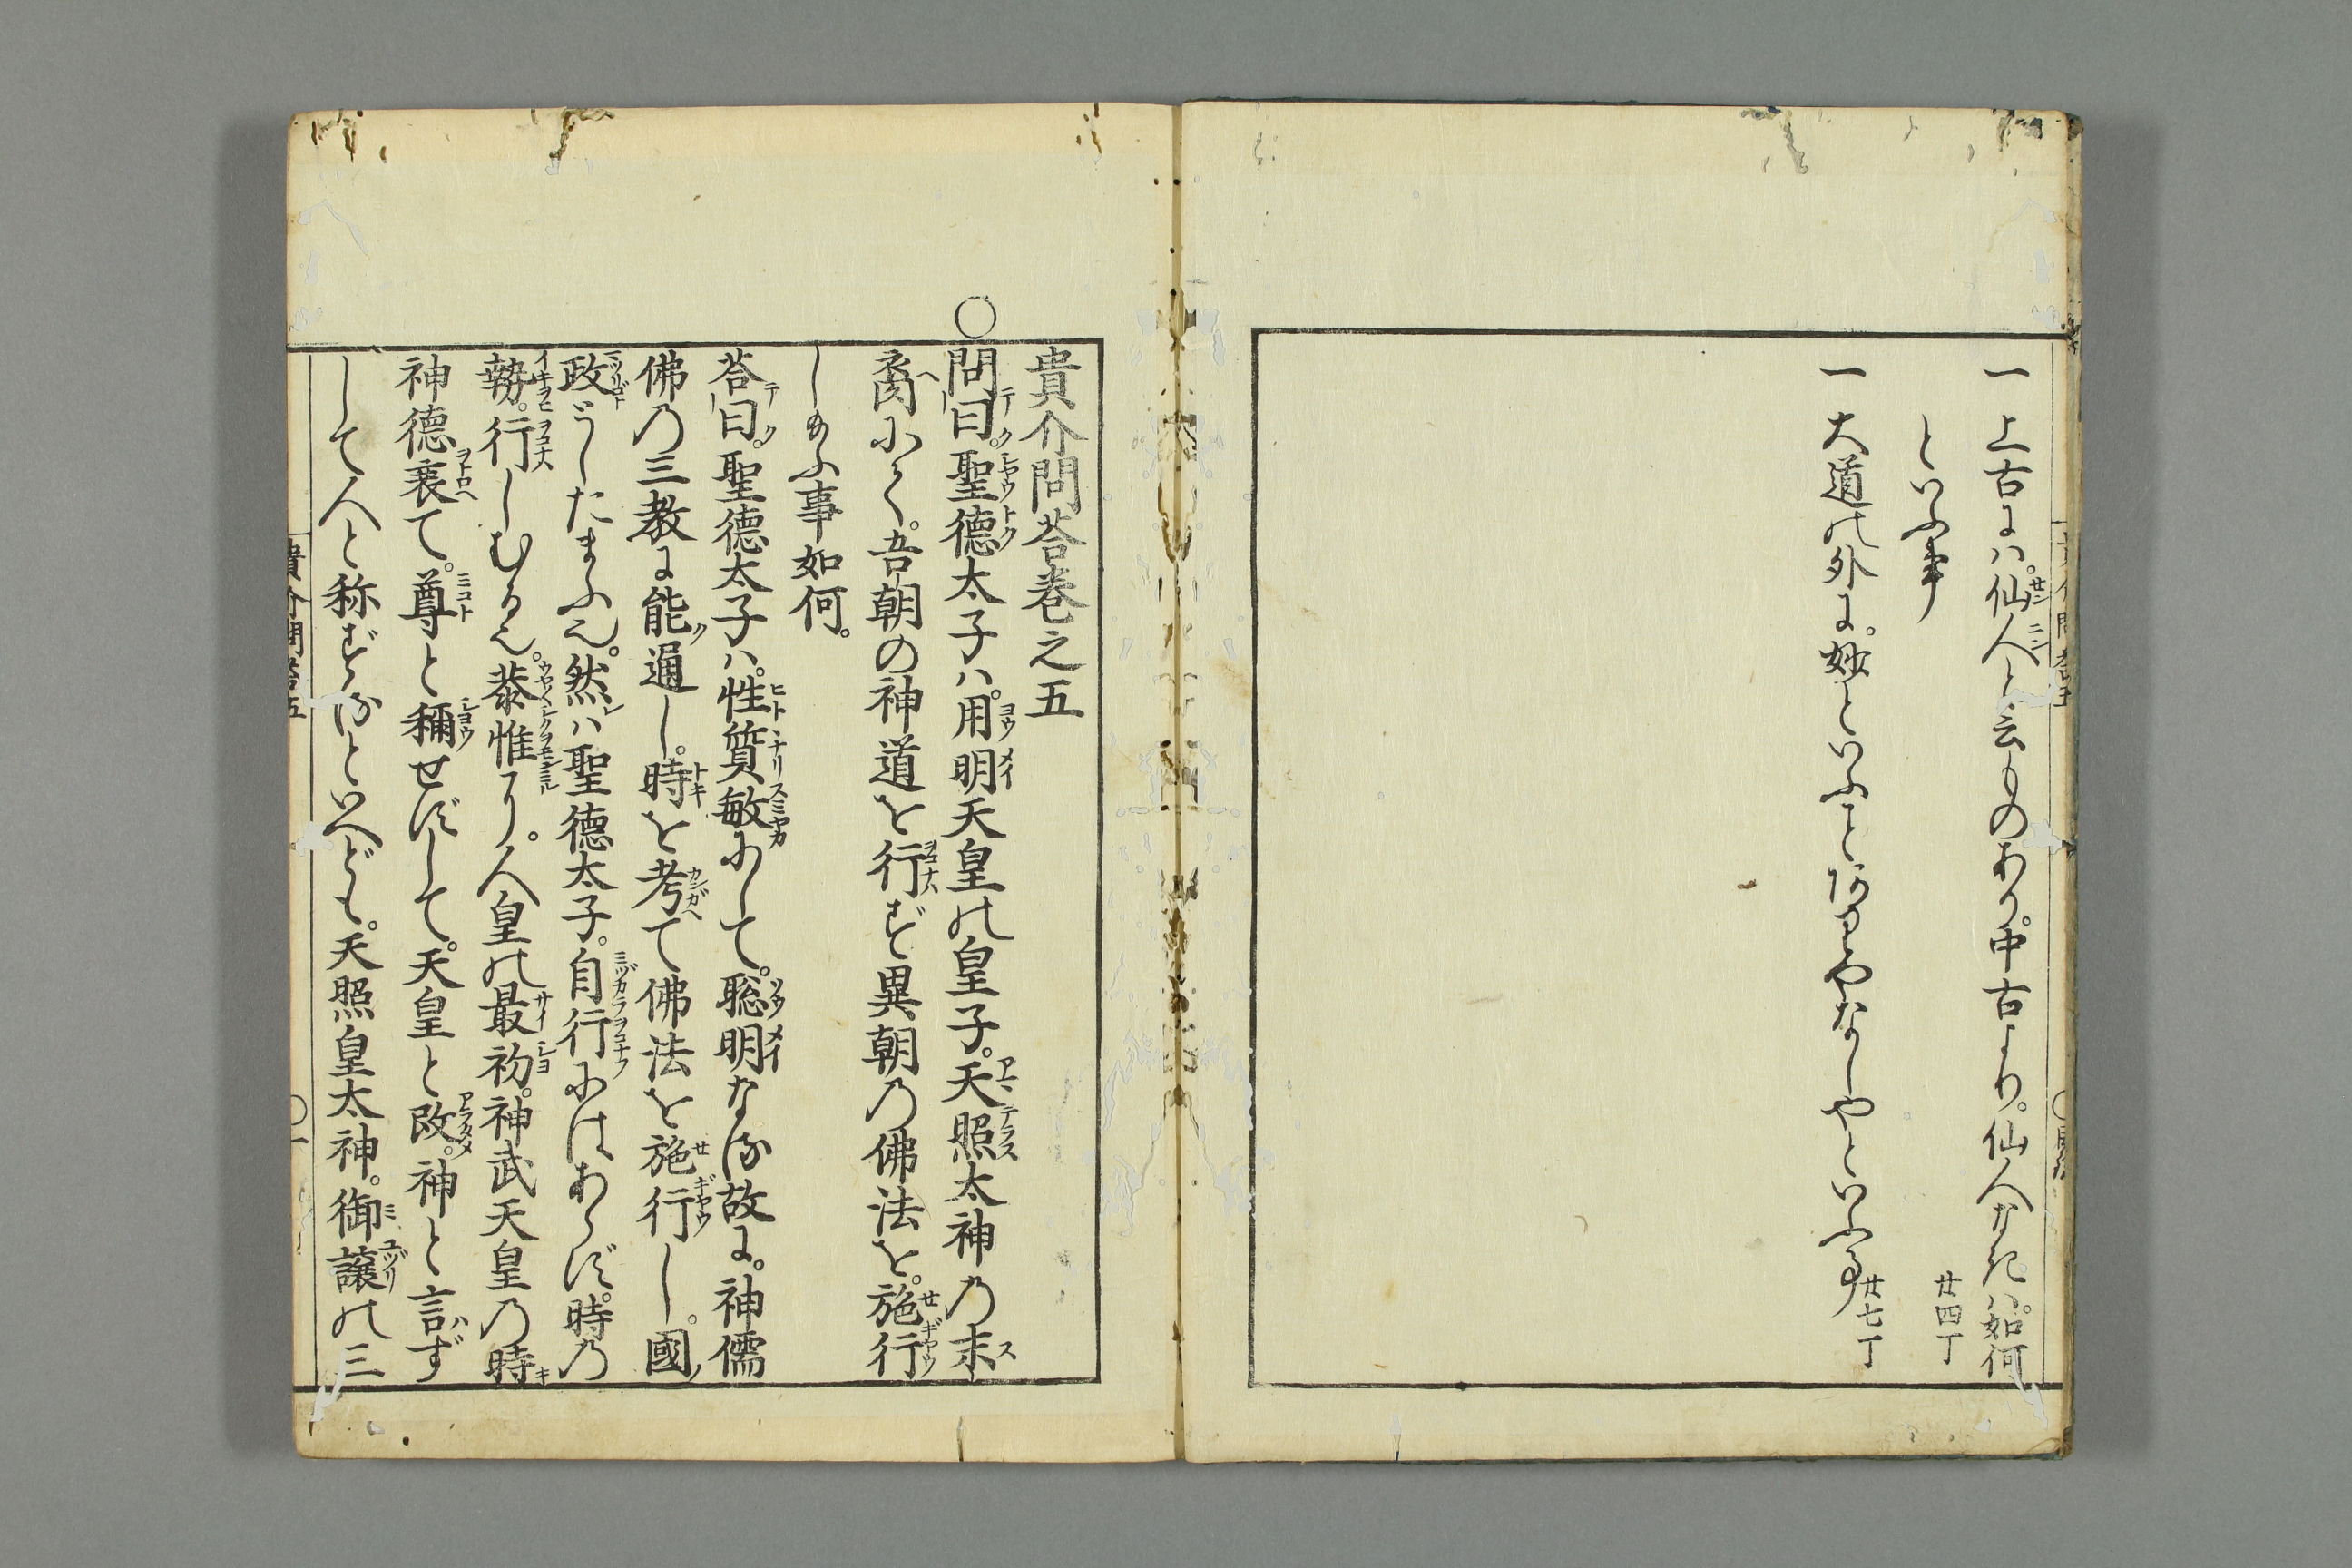 一上古には。仙人と云ものあり。中古より。仙人なきは。如何
といふ事 廿四丁
一大道の外に。妙といふことありやなしやといふ事 廿七丁
貴介問答巻之五
○問曰。聖德太子ハ。用明天皇の皇子。天照太神の末
裔にて。吾朝の神道を行ず異朝の佛法を。施行
し給ふ事如何。
荅曰。聖德太子ハ。性質敏にして。聡明なる故に。神儒
佛の三教に能通し。時を考て佛法を施行し。國
政としたまふ也。然ハ聖德太子。自行にはあらず。時の
勢。行しむる也。恭惟るに。人皇の最初。神武天皇の時
神德衰て。尊と稱せずして。天皇と改。神と言ず
して人と称ずるといへども。天照皇太神。御譲の三
貴介問荅五
○一